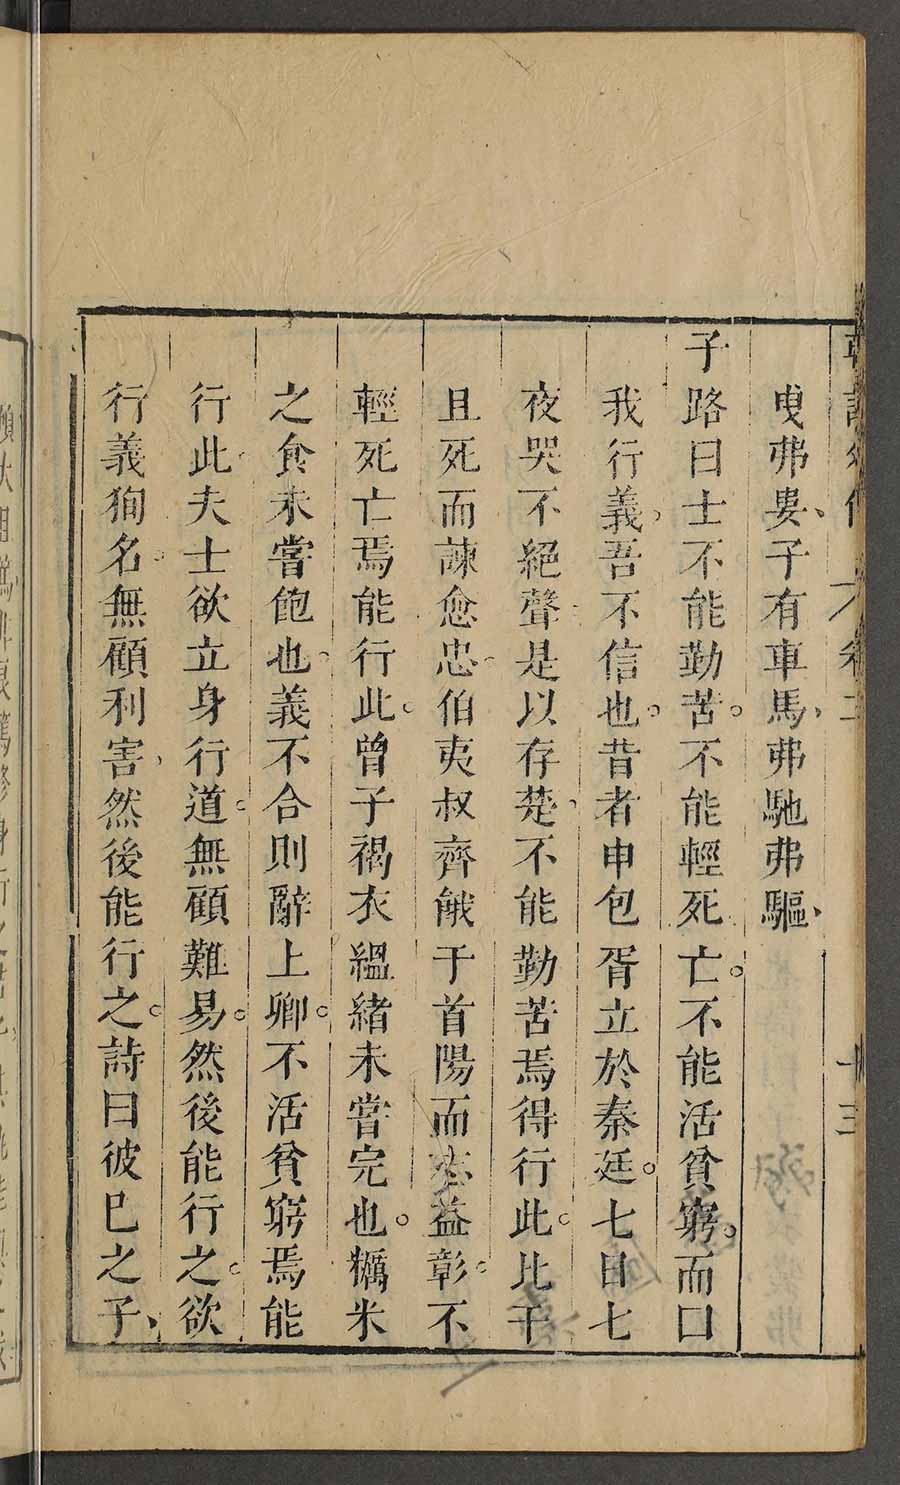 曳弗婁子有車馬弗馳弗驅
子路曰士不能勤苦不能輕死亡不能活貧窮而曰
我行義吾不信也昔者申包胥立於秦廷七日七
夜哭不絕聲是以存楚不能勤苦焉得行此比干
且死而諫愈忠伯夷叔齊餓于首陽而志益彰不
輕死亡焉能行此曾子褐衣縕緒未嘗完也糲米
之食未嘗飽也義不合則辭上卿不活貧窮焉能
行此夫士欲立身行道無顧難易然後能行之欲
行義狥名無顧利害然後能行之詩曰彼巳之子